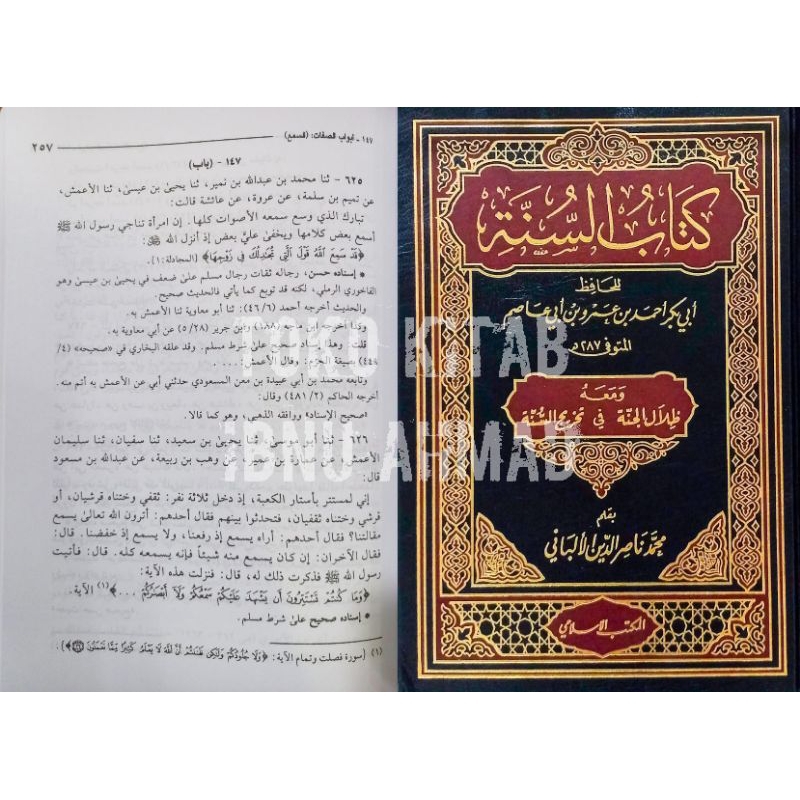 ١٤٧ - أبواب الصفات: (السمع)
٢٥٧
١٤٧ - (باب)
٦٢٥ - ثنا محمد بن عبدالله بن نمير، ثنا يحيىٰ بن عيسىٰ، ثنا الأعمش،
عن تميم بن سلمة، عن عروة، عن عائشة قالت:
تبارك الذي وسع سمعه الأصوات كلها. إن امرأة تناجي رسول الله ﷺ
أسمع بعض كلامها ويخفىٰ عليَّ بعض إذ أنزل الله:
﴿قَدْ سَمِعَ اللَّهُ قَوْلَ الَّتِي تُجَٰدِلُكَ فِي زَوْجِهَا﴾ (المجادلة: ١).
• إسناده حسن، رجاله ثقات رجال مسلم علىٰ ضعف في يحيىٰ بن عيسىٰ وهو
الفاخوري الرملي، لكنه قد توبع كما يأتي فالحديث صحيح.
والحديث أخرجه أحمد (٤٦/٦): ثنا أبو معاوية ثنا الأعمش به.
وكذا أخرجه ابن ماجه (١٨٨) وابن جرير (٥/٢٨) عن أبي معاوية به.
قلت: وهذا إسناد صحيح علىٰ شرط مسلم. وقد علقه البخاري في «صحيحه» (٤/
٤٤٨) بصيغة الجزم: وقال الأعمش.....
وتابعه محمد بن أبي عبيدة بن معن المسعودي حدثني أبي عن الأعمش به أتم منه.
أخرجه الحاكم (٤٨١/٢) وقال:
«صحيح الإسناد» ووافقه الذهبي، وهو كما قالا.
٦٢٦ - ثنا أبو موسىٰ، ثنا يحيىٰ بن سعيد، ثنا سفيان، ثنا سليمان
الأعمش عن عمارة بن عمير، عن وهب بن ربيعة، عن عبدالله بن مسعود
قال:
إني لمستتر بأستار الكعبة، إذ دخل ثلاثة نفر: ثقفي وختناه قرشيان، أو
قرشي وختناه ثقفيان، فتحدثوا بينهم فقال أحدهم: أترون الله تعالىٰ يسمع
مقالتنا؟ فقال أحدهم: أراه يسمع إذ رفعنا، ولا يسمع إذ خفضنا. قال:
فقال الآخران: إن كان يسمع منه شيئاً فإنه يسمعه كله. قال: فأتيت
رسول الله ﷺ فذكرت ذلك له، قال: فنزلت هذه الآية:
﴿وَمَا كُنتُمْ تَسْتَتِرُونَ أَن يَشْهَدَ عَلَيْكُمْ سَمْعُكُمْ وَلَا أَبْصَٰرُكُمْ ...﴾(١) الآية.
• إسناده صحيح علىٰ شرط مسلم.
(١) (سورة فصلت وتمام الآية: ﴿وَلَا جُلُودُكُمْ وَلَٰكِن ظَنَنتُمْ أَنَّ اللَّهَ لَا يَعْلَمُ كَثِيرًا مِّمَّا تَعْمَلُونَ ﴾).
كتاب السُّنَّة
للحافظ
أبي بكر أحمد بن عمرو بن أبي عاصم
المتوفى ٢٨٧ هـ
ومعه
ظلال الجنة في تخريج السُّنَّة
بقلم
محمد ناصر الدين الألباني
المكتب الإسلامي
TOKO KITAB
IBNU AHMAD